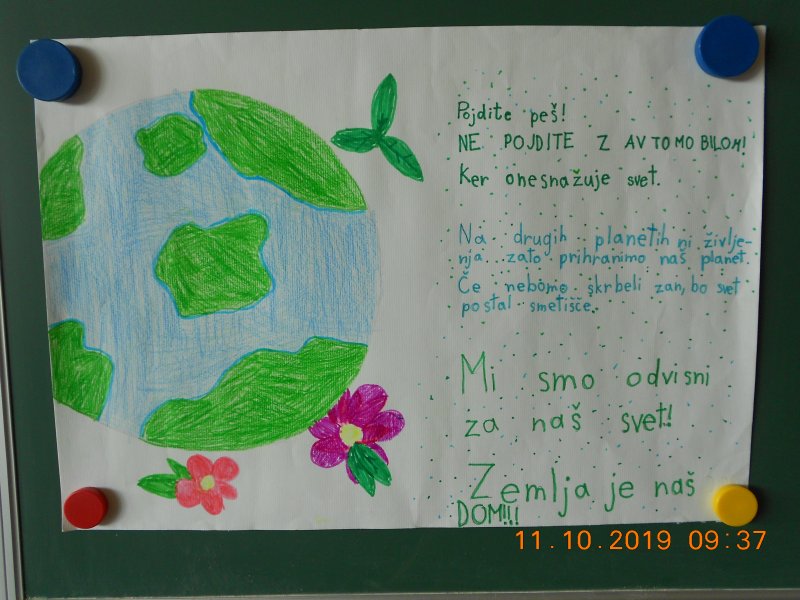 Pojdite peš!
NE POJDITE Z AVTOMOBILOM!
Ker onesnažuje svet.
Na drugih planetih ni življe-
nja, zato prihranimo naš planet.
Če nebomo skrbeli zanj, bo svet
postal smetišče.
Mi smo odvisni
za naš svet!
Zemlja je naš
DOM!!!
11.10.2019 09:37